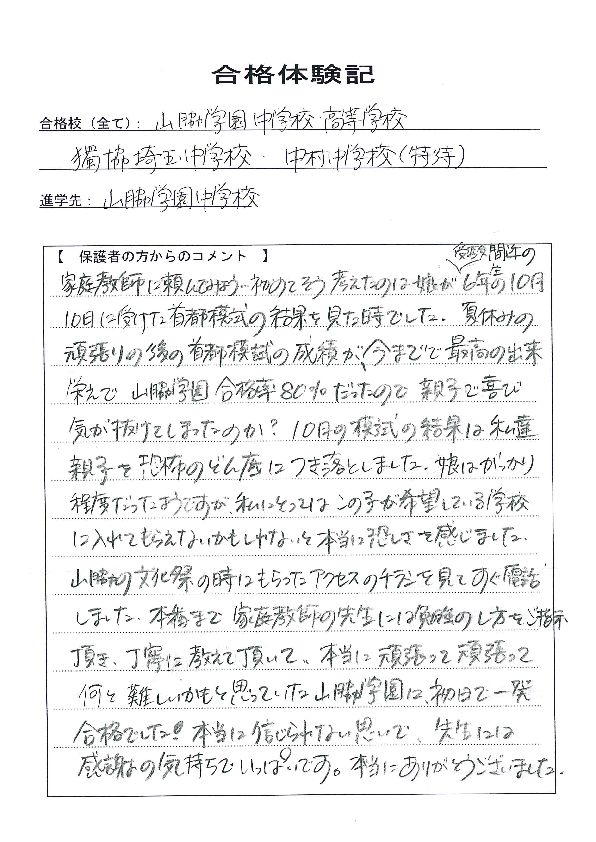 合格体験記
合格校（全て）: 山脇学園中学校・高等学校
獨協埼玉中学校・中村中学校(特待)
進学先: 山脇学園中学校
【 保護者の方からのコメント 】
受験間近の
家庭教師に頼んでみよう…初めてそう考えたのは娘が6年生の10月
10日に受けた首都模試の結果を見た時でした。夏休みの
頑張りの後の首都模試の成績が、今までで最高の出来
栄えで 山脇学園合格率80%だったので 親子で喜び
気が抜けてしまったのか? 10月の模試の結果は私達
親子を恐怖のどん底につき落としました。娘はがっかり
程度だったようですが、私にとってはこの子が希望している学校
に入れてもらえないかもしれないと本当に恐しさを感じました。
山脇の文化祭の時にもらったアクセスのチラシを見てすぐ電話
しました。本番まで 家庭教師の先生には勉強のし方をご指示
頂き、丁寧に教えて頂いて、本当に頑張って頑張って
何と難しいかもと思っていた山脇学園に、初日で一発
合格でした!! 本当に信じられない思いで、先生には
感謝の気持ちでいっぱいです。本当にありがとうございました。